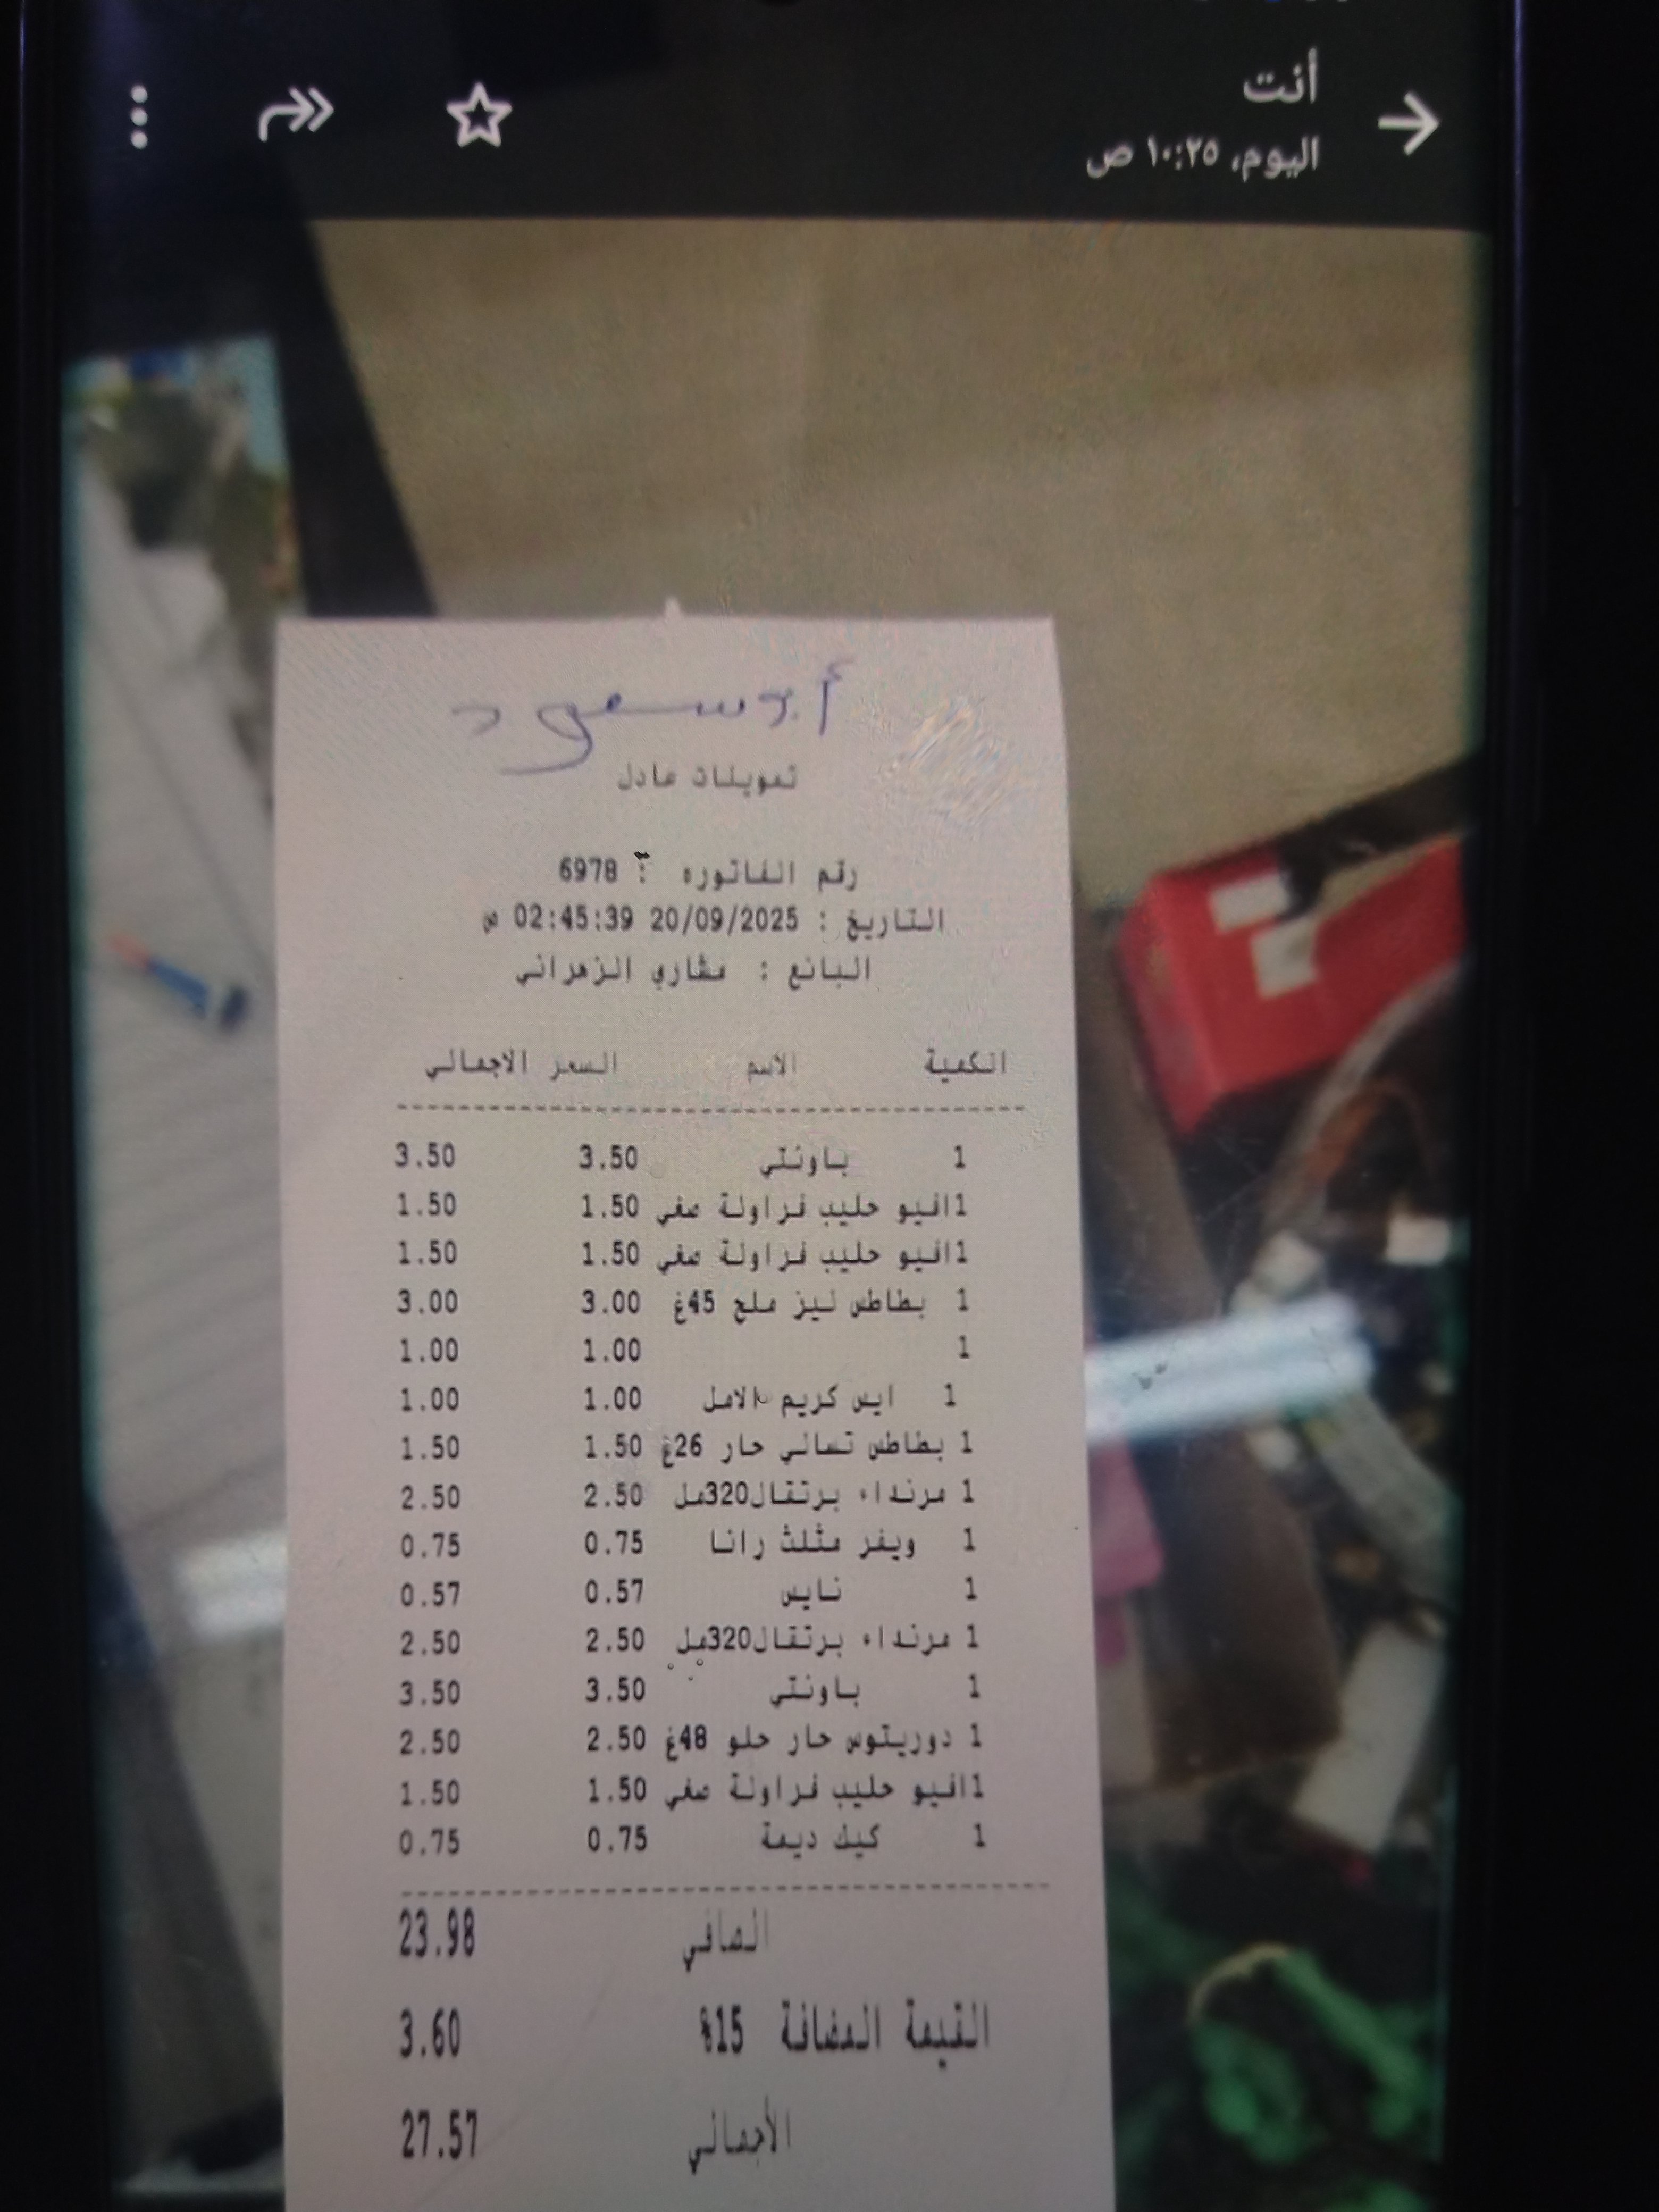 أنت
اليوم، ١٠:٢٥ ص
أ. مسعود
تموينات عادل
رقم الفاتوره : 6978
التاريخ : 20/09/2025 02:45:39 ص
البائع : مشاري الزهراني
الكمية الاسم السعر الاجمالي
1 باونتي 3.50 3.50
1 افيو حليب فراولة صغي 1.50 1.50
1 افيو حليب فراولة صغي 1.50 1.50
1 بطاطس ليز ملح 45غ 3.00 3.00
1 1.00 1.00
1 ايس كريم الامل 1.00 1.00
1 بطاطس تسالي حار 26غ 1.50 1.50
1 مرنداء برتقال320مل 2.50 2.50
1 ويفر مثلث رانا 0.75 0.75
1 نايس 0.57 0.57
1 مرنداء برتقال320مل 2.50 2.50
1 باونتي 3.50 3.50
1 دوريتوس حار حلو 48غ 2.50 2.50
1 افيو حليب فراولة صغي 1.50 1.50
1 كيك ديمة 0.75 0.75
الصافي 23.98
القيمة المضافة 15% 3.60
الأجمالي 27.57